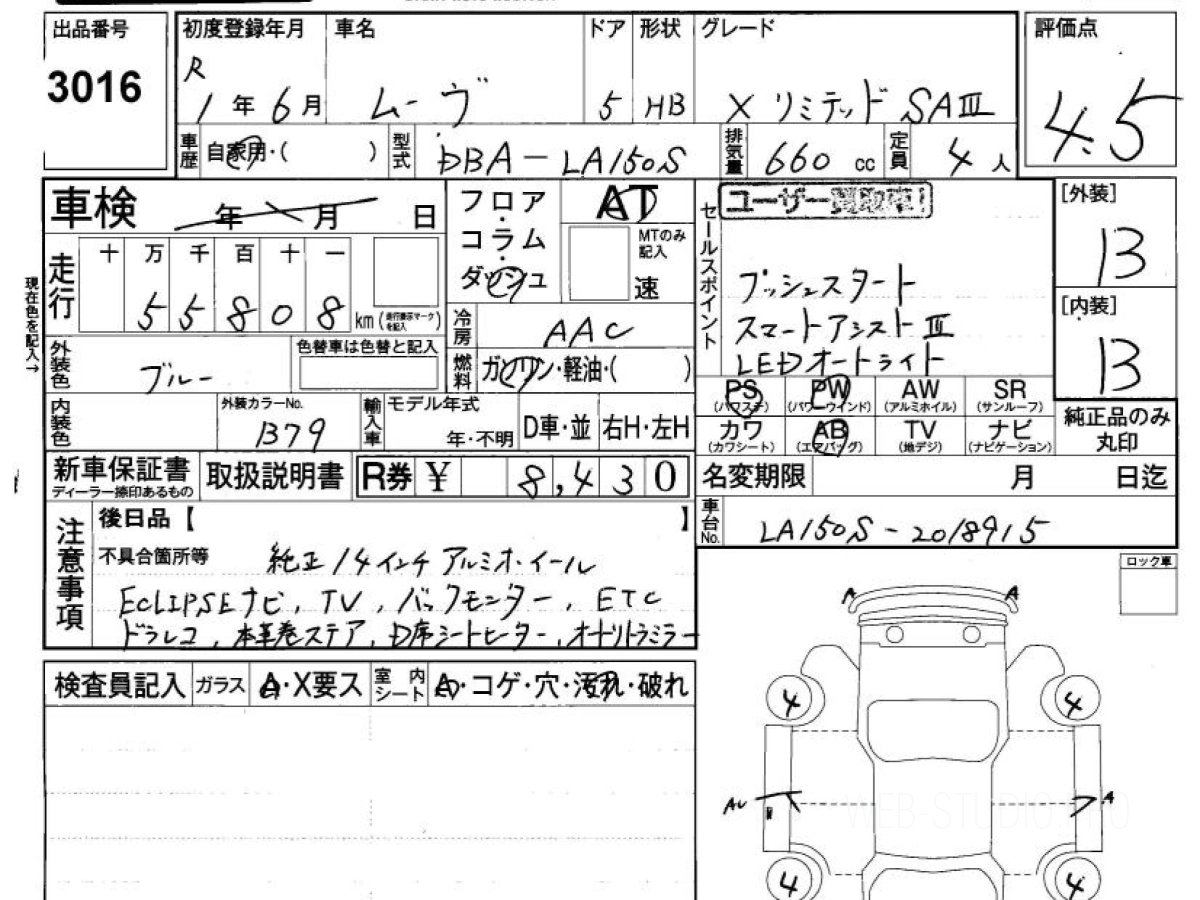 出品番号
3016
初度登録年月
R
1年6月
車名
ムーヴ
ドア
5
形状
HB
グレード
X リミテッド SAⅢ
評価点
4.5
車歴
自家用・( )
型式
DBA-LA150S
排気量
660 cc
定員
4人
車検
年 月 日
フロア・コラム・ダッシュ
AT
MTのみ記入
速
セールスポイント
ユーザー買取車!
プッシュスタート
スマートアシストⅢ
LEDオートライト
[外装]
13
[内装]
13
現在色を記入→
走行
十 万 千 百 十 一
5 5 8 0 8 km
(走行表示マークを記入)
冷房
AAC
外装色
ブルー
色替車は色替と記入
燃料
ガソリン・軽油・( )
PS
(パワステ)
PW
(パワーウインド)
AW
(アルミホイル)
SR
(サンルーフ)
カワ
(カワシート)
AB
(エアバッグ)
TV
(地デジ)
ナビ
(ナビゲーション)
純正品のみ
丸印
内装色
外装カラーNo.
B79
輸入車
モデル年式
年・不明
D車・並
右H・左H
新車保証書
ディーラー捺印あるもの
取扱説明書
R券 ¥ 8,430
名変期限 月 日迄
車台No.
LA150S-2018915
注意事項
後日品【 】
不具合箇所等
純正14インチアルミホイール
ECLIPSEナビ, TV, バックモニター, ETC
ドラレコ, 本革巻ステア, D席シートヒーター, オートリトラミラー
ロック車
検査員記入
ガラス
A・X要ス
室内シート
A・コゲ・穴・汚れ・破れ
A
A
4
4
AU
A
4
4
WEB-STUDIO.PRO